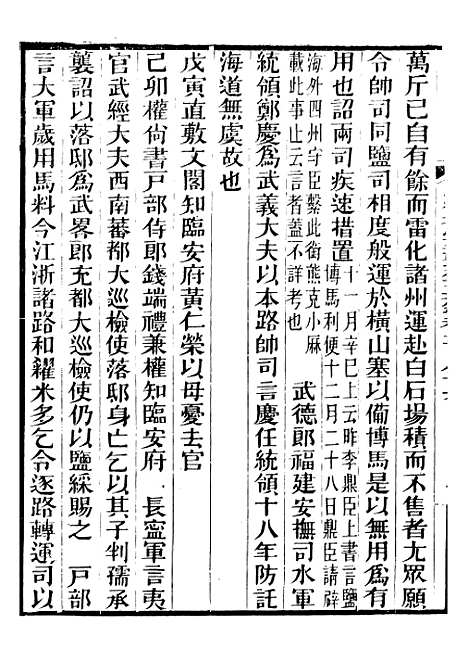 萬斤已自有餘而雷化諸州運赴白石場積而不售者尢眾願
令帥司同鹽司相度般運於橫山塞以備博馬是以無用爲有
用也詔兩司疾速措置十一月辛巳上云昨李鼎臣上書言鹽
博馬利便十二月二十八日鼎臣請辟
海外四州守臣繫此銜熊克小厤
載此事止云言者蓋不詳考也 武德郎福建安撫司水軍
統領鄭慶爲武義大夫以本路帥司言慶任統領十八年防託
海道無虞故也
戊寅直敷文閣知臨安府黃仁榮以母憂去官
己卯權尙書戸部侍郎錢端禮兼權知臨安府 長寧軍言夷
官武經大夫西南蕃都大巡檢使落邸身亡乞以其子判孺承
襲詔以落邸爲武畧郎充都大巡檢使仍以鹽綵賜之 戸部
言大軍歲用馬料今江浙諸路和糴米多乞令逐路轉運司以